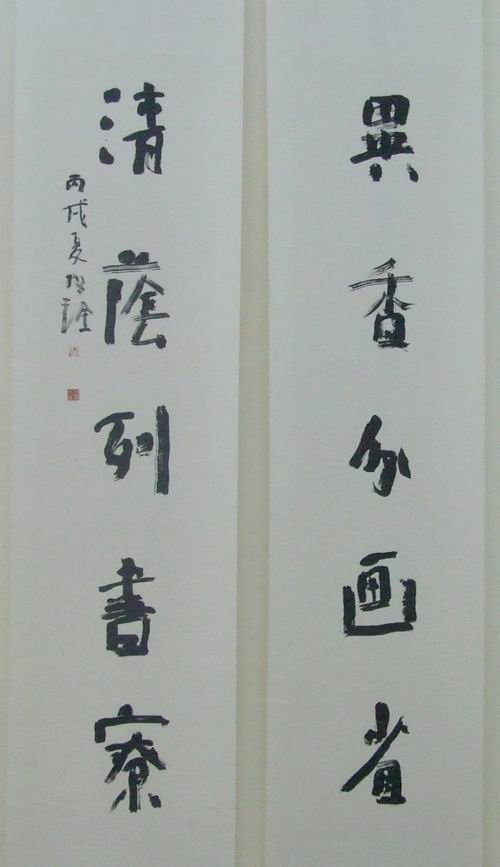 異香分画省
清蔭列書寮
丙戌夏